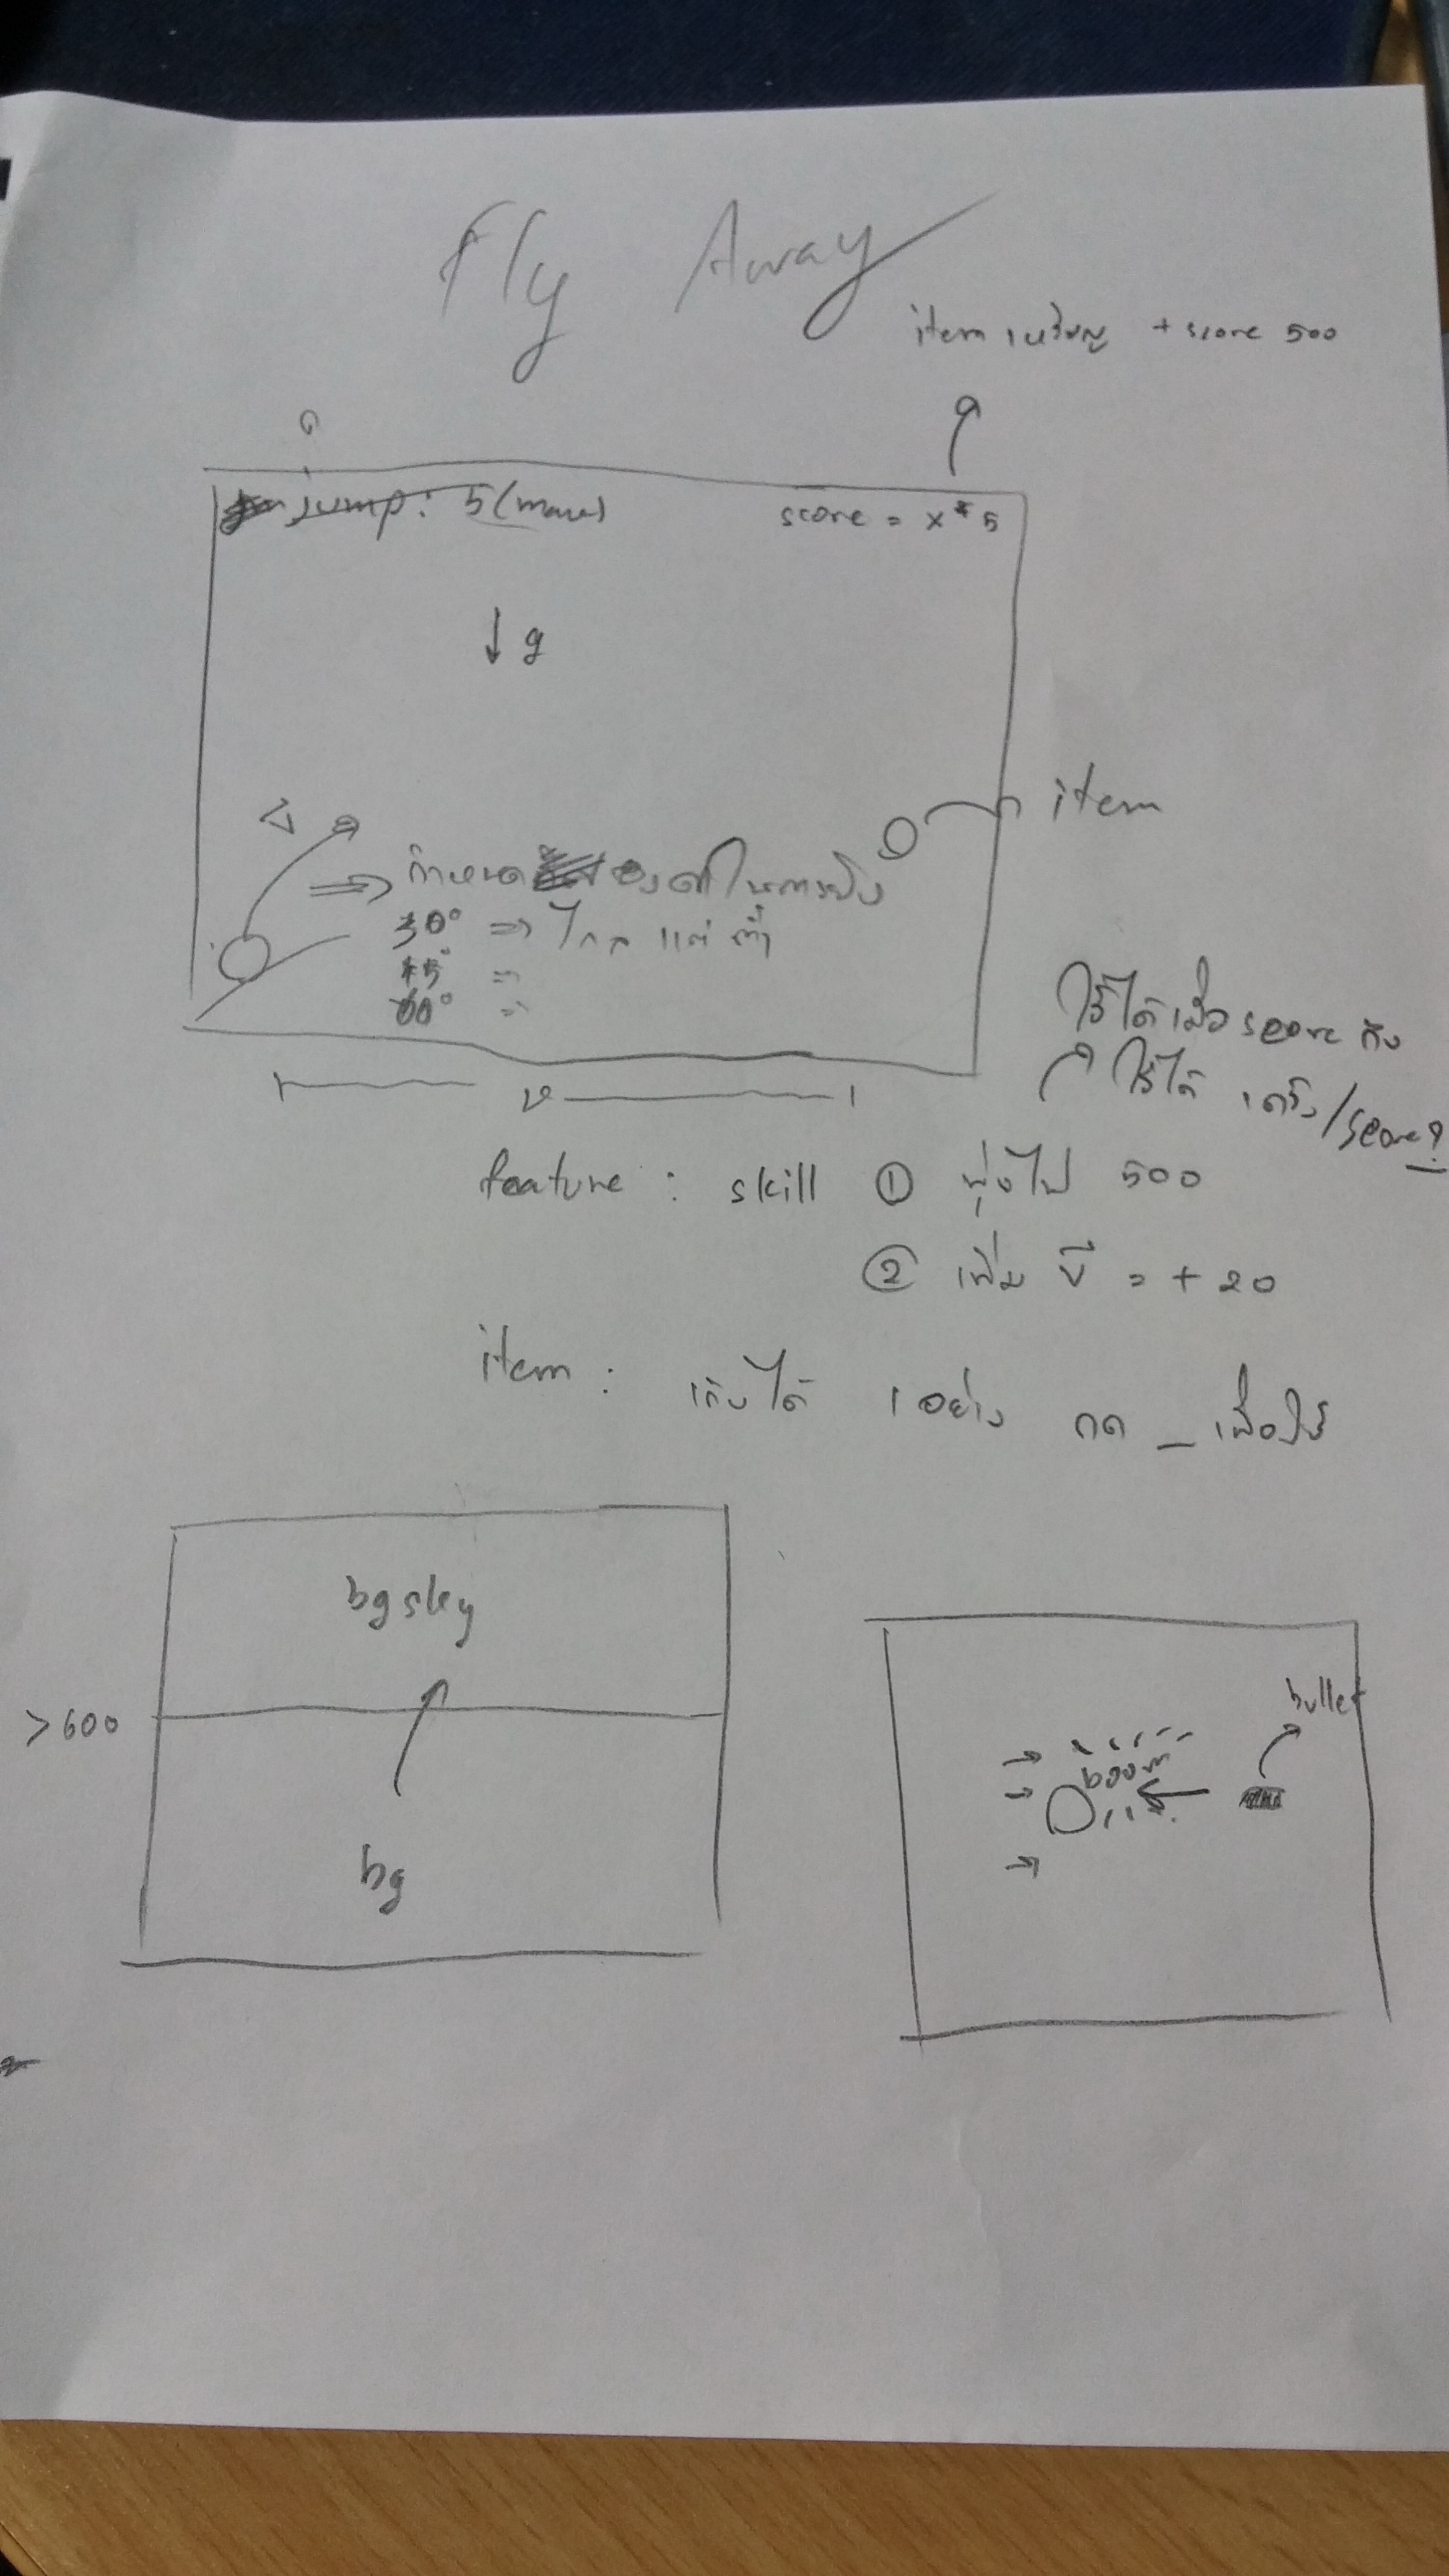 Fly Away
item เหรียญ + score 500
jump: 5 (max)
score = x * 5
↓ g
item
⇒ กำหนด องศาในการยิง
30° ⇒ ไกล แต่ ต่ำ
45° ⇒
60° ⇒
ใช้ได้เมื่อ score ถึง
ใช้ได้ 1 ครั้ง/score?
feature : skill ① พุ่งไป 500
② เพิ่ม v̄ = + 20
item : เก็บได้ 1 อย่าง กด _ เพื่อใช้
bgsky
>600
bg
bullet
boom